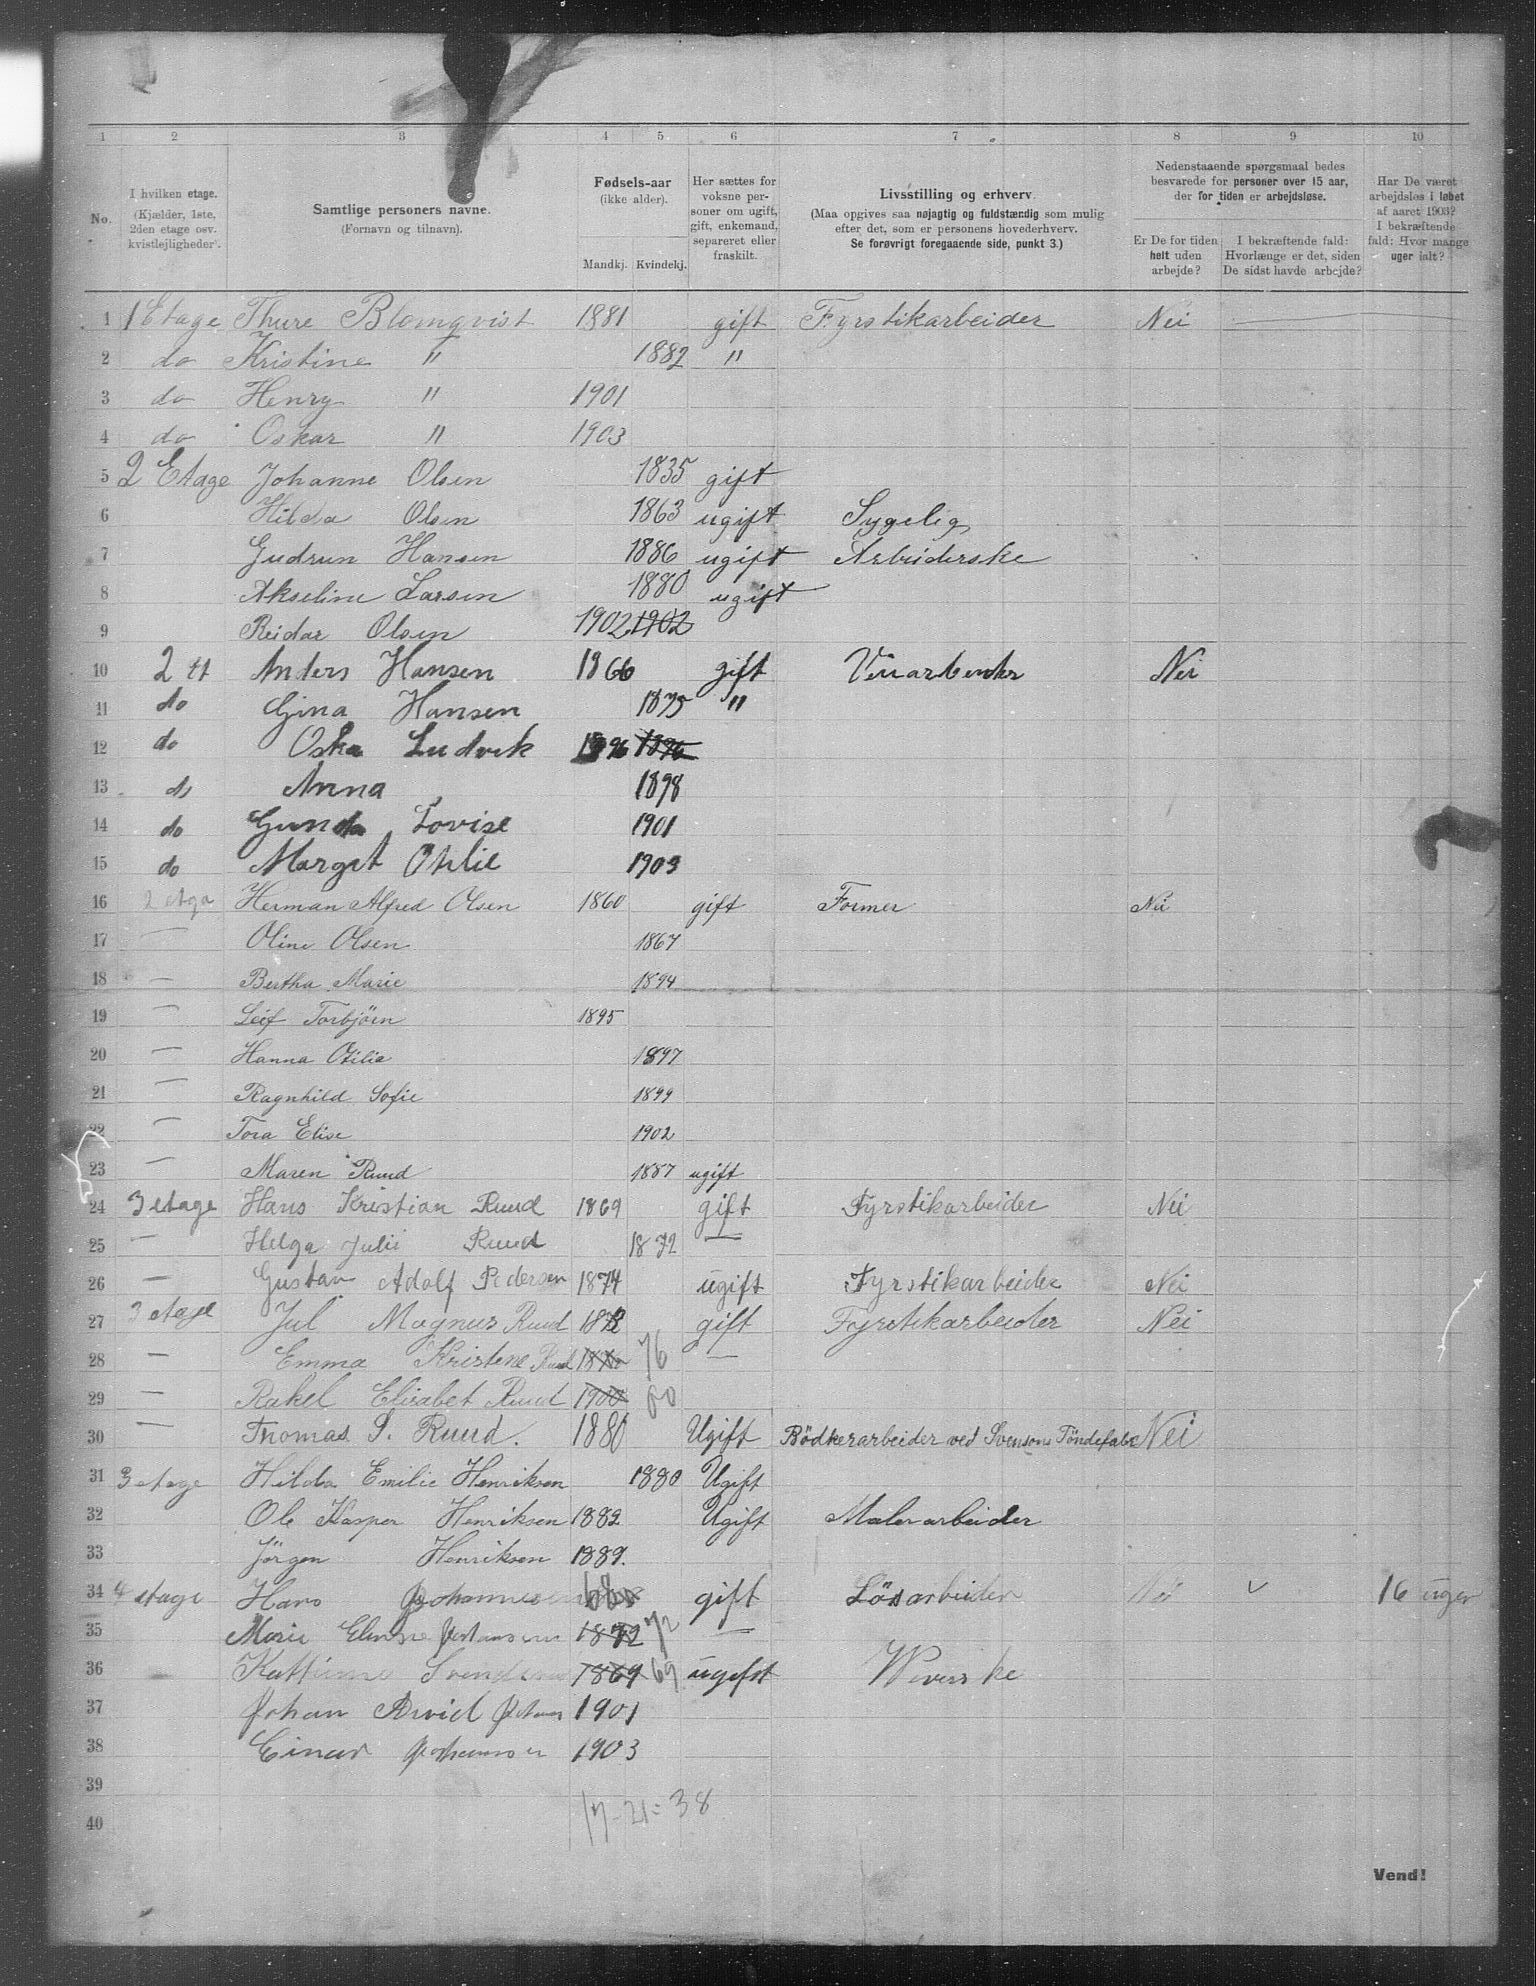 1 2 3 4 5 6 7 8 9 10
No.
I hvilken etage. (Kjælder, 1ste, 2den etage osv. kvistlejligheder).
Samtlige personers navne. (Fornavn og tilnavn).
Fødsels-aar (ikke alder). Mandkj. Kvindekj.
Her sættes for voksne personer om ugift, gift, enkemand, separeret eller fraskilt.
Livsstilling og erhverv. (Maa opgives saa nøjagtig og fuldstændig som mulig efter det, som er personens hovederhverv. Se forøvrigt foregaaende side, punkt 3.)
Nedenstaaende spørgsmaal bedes besvarede for personer over 15 aar, der for tiden er arbejdsløse.
Er De for tiden helt uden arbejde?
I bekræftende fald: Hvorlænge er det, siden De sidst havde arbejde?
Har De været arbejdsløs i løbet af aaret 1903? I bekræftende fald: Hvor mange uger ialt?
1 1 Etage Thure Blomqvist 1881 gift Fyrstikarbeider Nei
2 do Kristine " 1882 "
3 do Henry " 1901
4 do Oskar " 1903
5 2 Etage Johanne Olsen 1835 gift
6 Hilda Olsen 1863 ugift Sygelig
7 Gudrun Hansen 1886 ugift Arbeiderske
8 Akseline Larsen 1880 ugift
9 Reidar Olsen 1902 1902
10 2 et Anders Hansen 1866 gift Nei
11 do Gina Hansen 1875 "
12 do Oska Ludvik 1896 1896
13 do Anna 1898
14 do Gunda Lovise 1901
15 do Margit Otilie 1903
16 2 etga Herman Alfred Olsen 1860 gift Former Nei
17 — Oline Olsen 1867
18 — Bertha Marie 1894
19 — Leif Torbjörn 1895
20 — Hanna Otilie 1897
21 — Ragnhild Sofie 1899
22 — Tora Elise 1902
23 — Maren Ruud 1887 ugift
24 3 etage Hans Kristian Ruud 1869 gift Fyrstikarbeider Nei
25 — Helga Julie Ruud 1872 —
26 — Gustav Adolf Pedersen 1874 ugift Fyrstikarbeider Nei
27 3 etage Jul Magnus Ruud 1878 gift Fyrstikarbeider Nei
28 — Emma Kristine Ruud 1876 76 —
29 — Rakel Elisabet Ruud 1900 00
30 — Thomas S. Ruud. 1880 Ugift Bödkerarbeider ved Svensons Töndefabr Nei
31 3 etage Hilda Emilie Henriksen 1880 Ugift
32 Ole Kasper Henriksen 1882 Ugift Malerarbeider
33 Jörgen Henriksen 1889.
34 4 etage Hans Johannesen 68 gift Lösarbeider Nei 16 uger
35 Marie Johansen 1872 72 —
36 Svendsen 1869 69 ugift Weverske
37 Johan Arvid 1901
38 Einar Johannsen 1903
39
40
17-21=38
Vend!